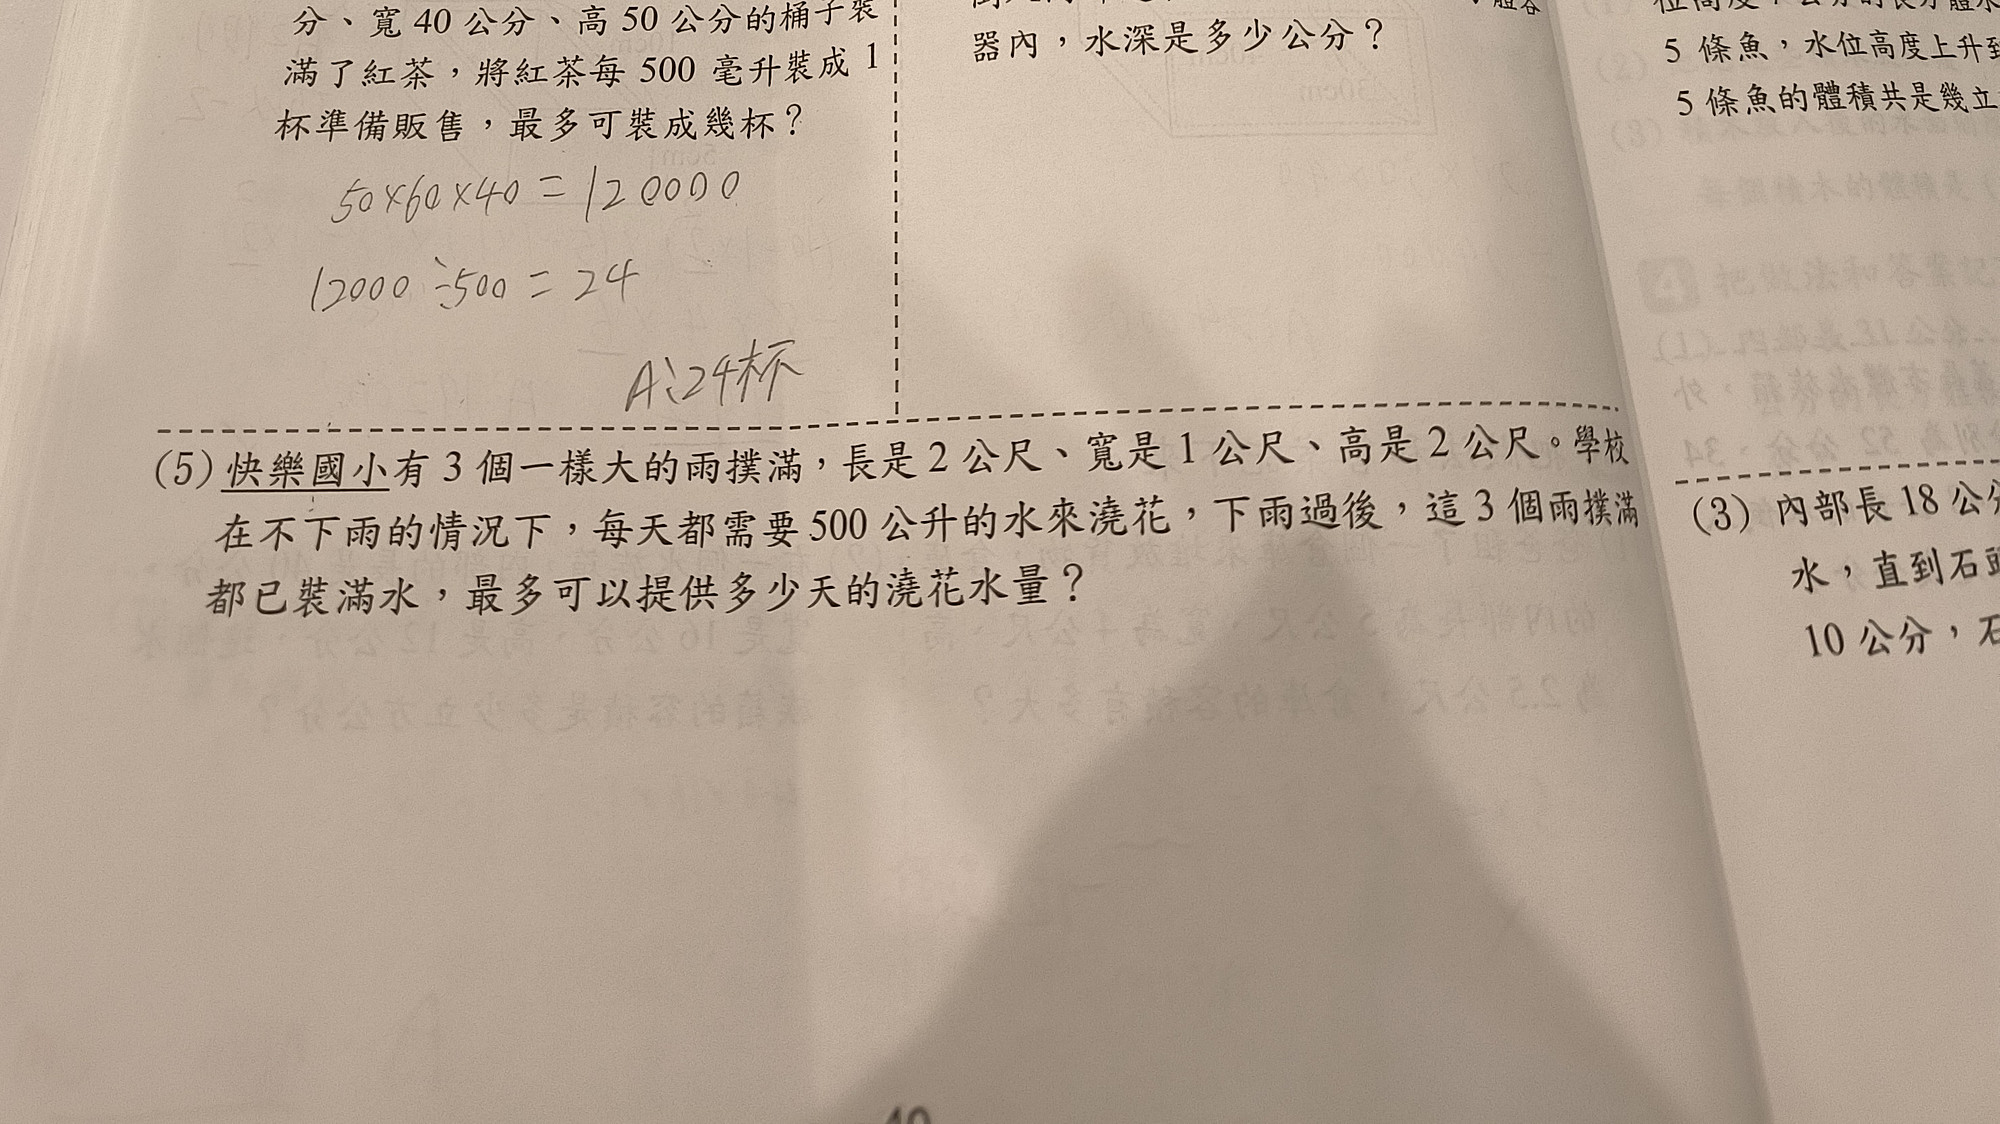 分、寬 40 公分、高 50 公分的桶子裝
滿了紅茶，將紅茶每 500 毫升裝成 1
杯準備販售，最多可裝成幾杯？
50×60×40=120000
12000÷500=24
A:24杯
器內，水深是多少公分？
(5) 快樂國小有 3 個一樣大的雨撲滿，長是 2 公尺、寬是 1 公尺、高是 2 公尺。學校
在不下雨的情況下，每天都需要 500 公升的水來澆花，下雨過後，這 3 個雨撲滿
都已裝滿水，最多可以提供多少天的澆花水量？
5 條魚，水位高度上升到
5 條魚的體積共是幾立
(3) 內部長 18 公分
水，直到石頭
10 公分，石